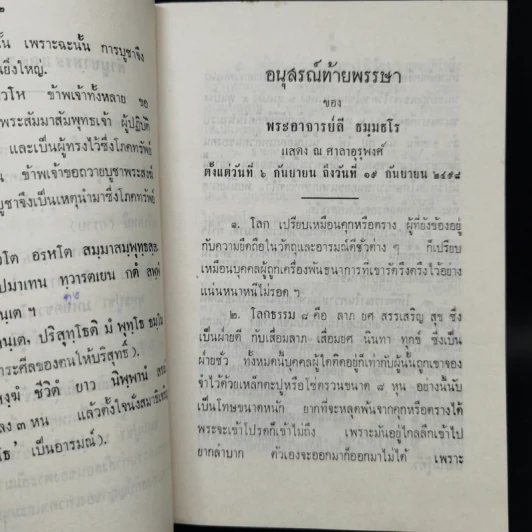 ั้น เพราะฉะนั้น การบูชาจึง
นยิ่งใหญ่.
ข้าพเจ้าทั้งหลาย ขอ
พระสัมมาสัมพุทธเจ้า ผู้ปฏิบัติ
และเป็นผู้ทรงไว้ซึ่งโภคทรัพย์
น ข้าพเจ้าขอถวายบูชาพระสงฆ์
บูชาจึงเป็นเหตุนำมาซึ่งโภคทรัพย์
อรหโต สมฺมาสมฺพุทฺธสฺส
ปมาเทน ทฺวารตเยน กตํ
ปริสุทฺโธติ มํ พุทฺโธ
ระศีลของตนให้บริสุทธิ์).
ชีวิตํ ยาว นิพฺพานํ
ลง ๓ หน แล้วตั้งใจนั่งสมาธิ
เป็นอารมณ์).
อนุสรณ์ท้ายพรรษา
ของ
พระอาจารย์ลี ธมฺมธโร
แสดง ณ ศาลาอุรุพงศ์
ตั้งแต่วันที่ ๖ กันยายน ถึงวันที่ ๑๙ กันยายน ๒๔๙๘
๑. โลก เปรียบเหมือนคุกหรือตราง ผู้ที่ยังข้องอยู่
กับความยึดถือในวัตถุและอารมณ์ดีชั่วต่าง ๆ ก็เปรียบ
เหมือนบุคคลผู้ถูกเครื่องพันธนาการที่เขารัดรึงตรึงไว้อย่าง
แน่นหนาหนีไม่รอด ฯ
๒. โลกธรรม ๘ คือ ลาภ ยศ สรรเสริญ สุข ซึ่ง
เป็นฝ่ายดี กับเสื่อมลาภ เสื่อมยศ นินทา ทุกข์ ซึ่งเป็น
ฝ่ายชั่ว ทั้งหมดนี้บุคคลผู้ใดติดอยู่ก็เท่ากับผู้นั้นถูกเขาจอง
จำไว้ด้วยเหล็กตะปูหรือโซ่ตรวนขนาด ๘ หุน อย่างนี้นับ
เป็นโทษขนาดหนัก ยากที่จะหลุดพ้นจากคุกหรือตรางได้
พระจะเข้าโปรดก็เข้าไม่ถึง เพราะมันอยู่ไกลลึกเข้าไป
ยากลำบาก ตัวเองจะออกมาก็ออกมาไม่ได้ เพราะ